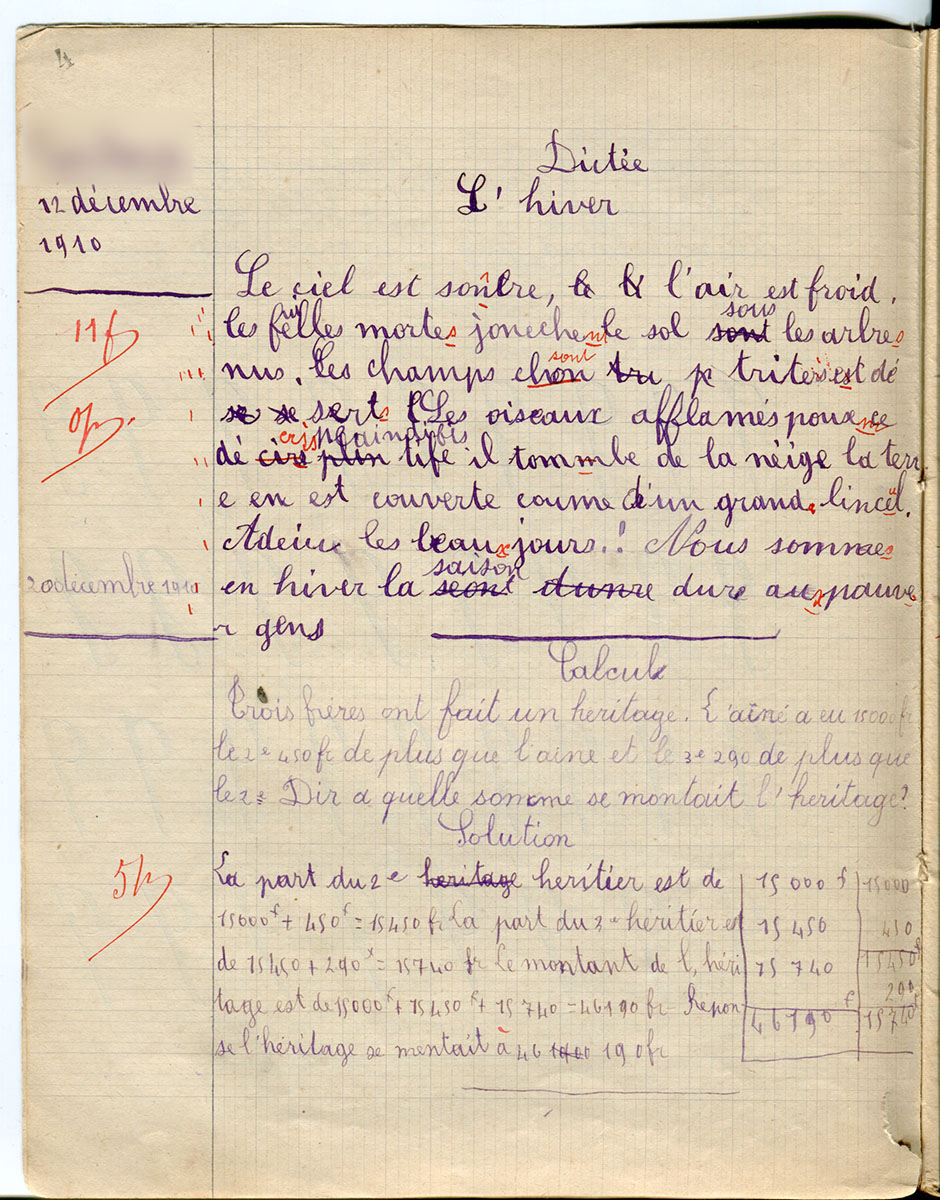 4
12 décembre
1910
Dictée
L'hiver
Le ciel est sombre, l'air est froid.
11f
les feuilles mortes jonechent le sol sont sous les arbres
nus. Les champs chon sont tristes et dé
0p.
serts Les oiseaux afflamés pousse
dé cire cris plin plaintifs tife il tommbe de la nëige la terr
e en est couverte coume d'un grand linceul.
Adeiu les beaux jours! Nous sommes
20 décembre 1910
en hiver la seont saison dunre dure aux pauve
r gens
Calcul
Trois frères ont fait un heritage. L'ainé a eu 15000 fr
le 2e 450 fr de plus que l'aine et le 3e 290 de plus que
le 2e Dir a quelle somme se montait l'heritage?
Solution
5p
La part du 2e heritage heritier est de
15000f + 450f = 15450 fr La part du 3e héritier es
de 15450 + 290f = 15740 fr Le montant de l, héri
tage est de 15000f + 15450f + 15740 = 46190 fr Répon
se l'héritage se mentait à 46 190 fr
15 000 f
15 450
15 740
46190 f
15000
450
15450 f
290
15740 f